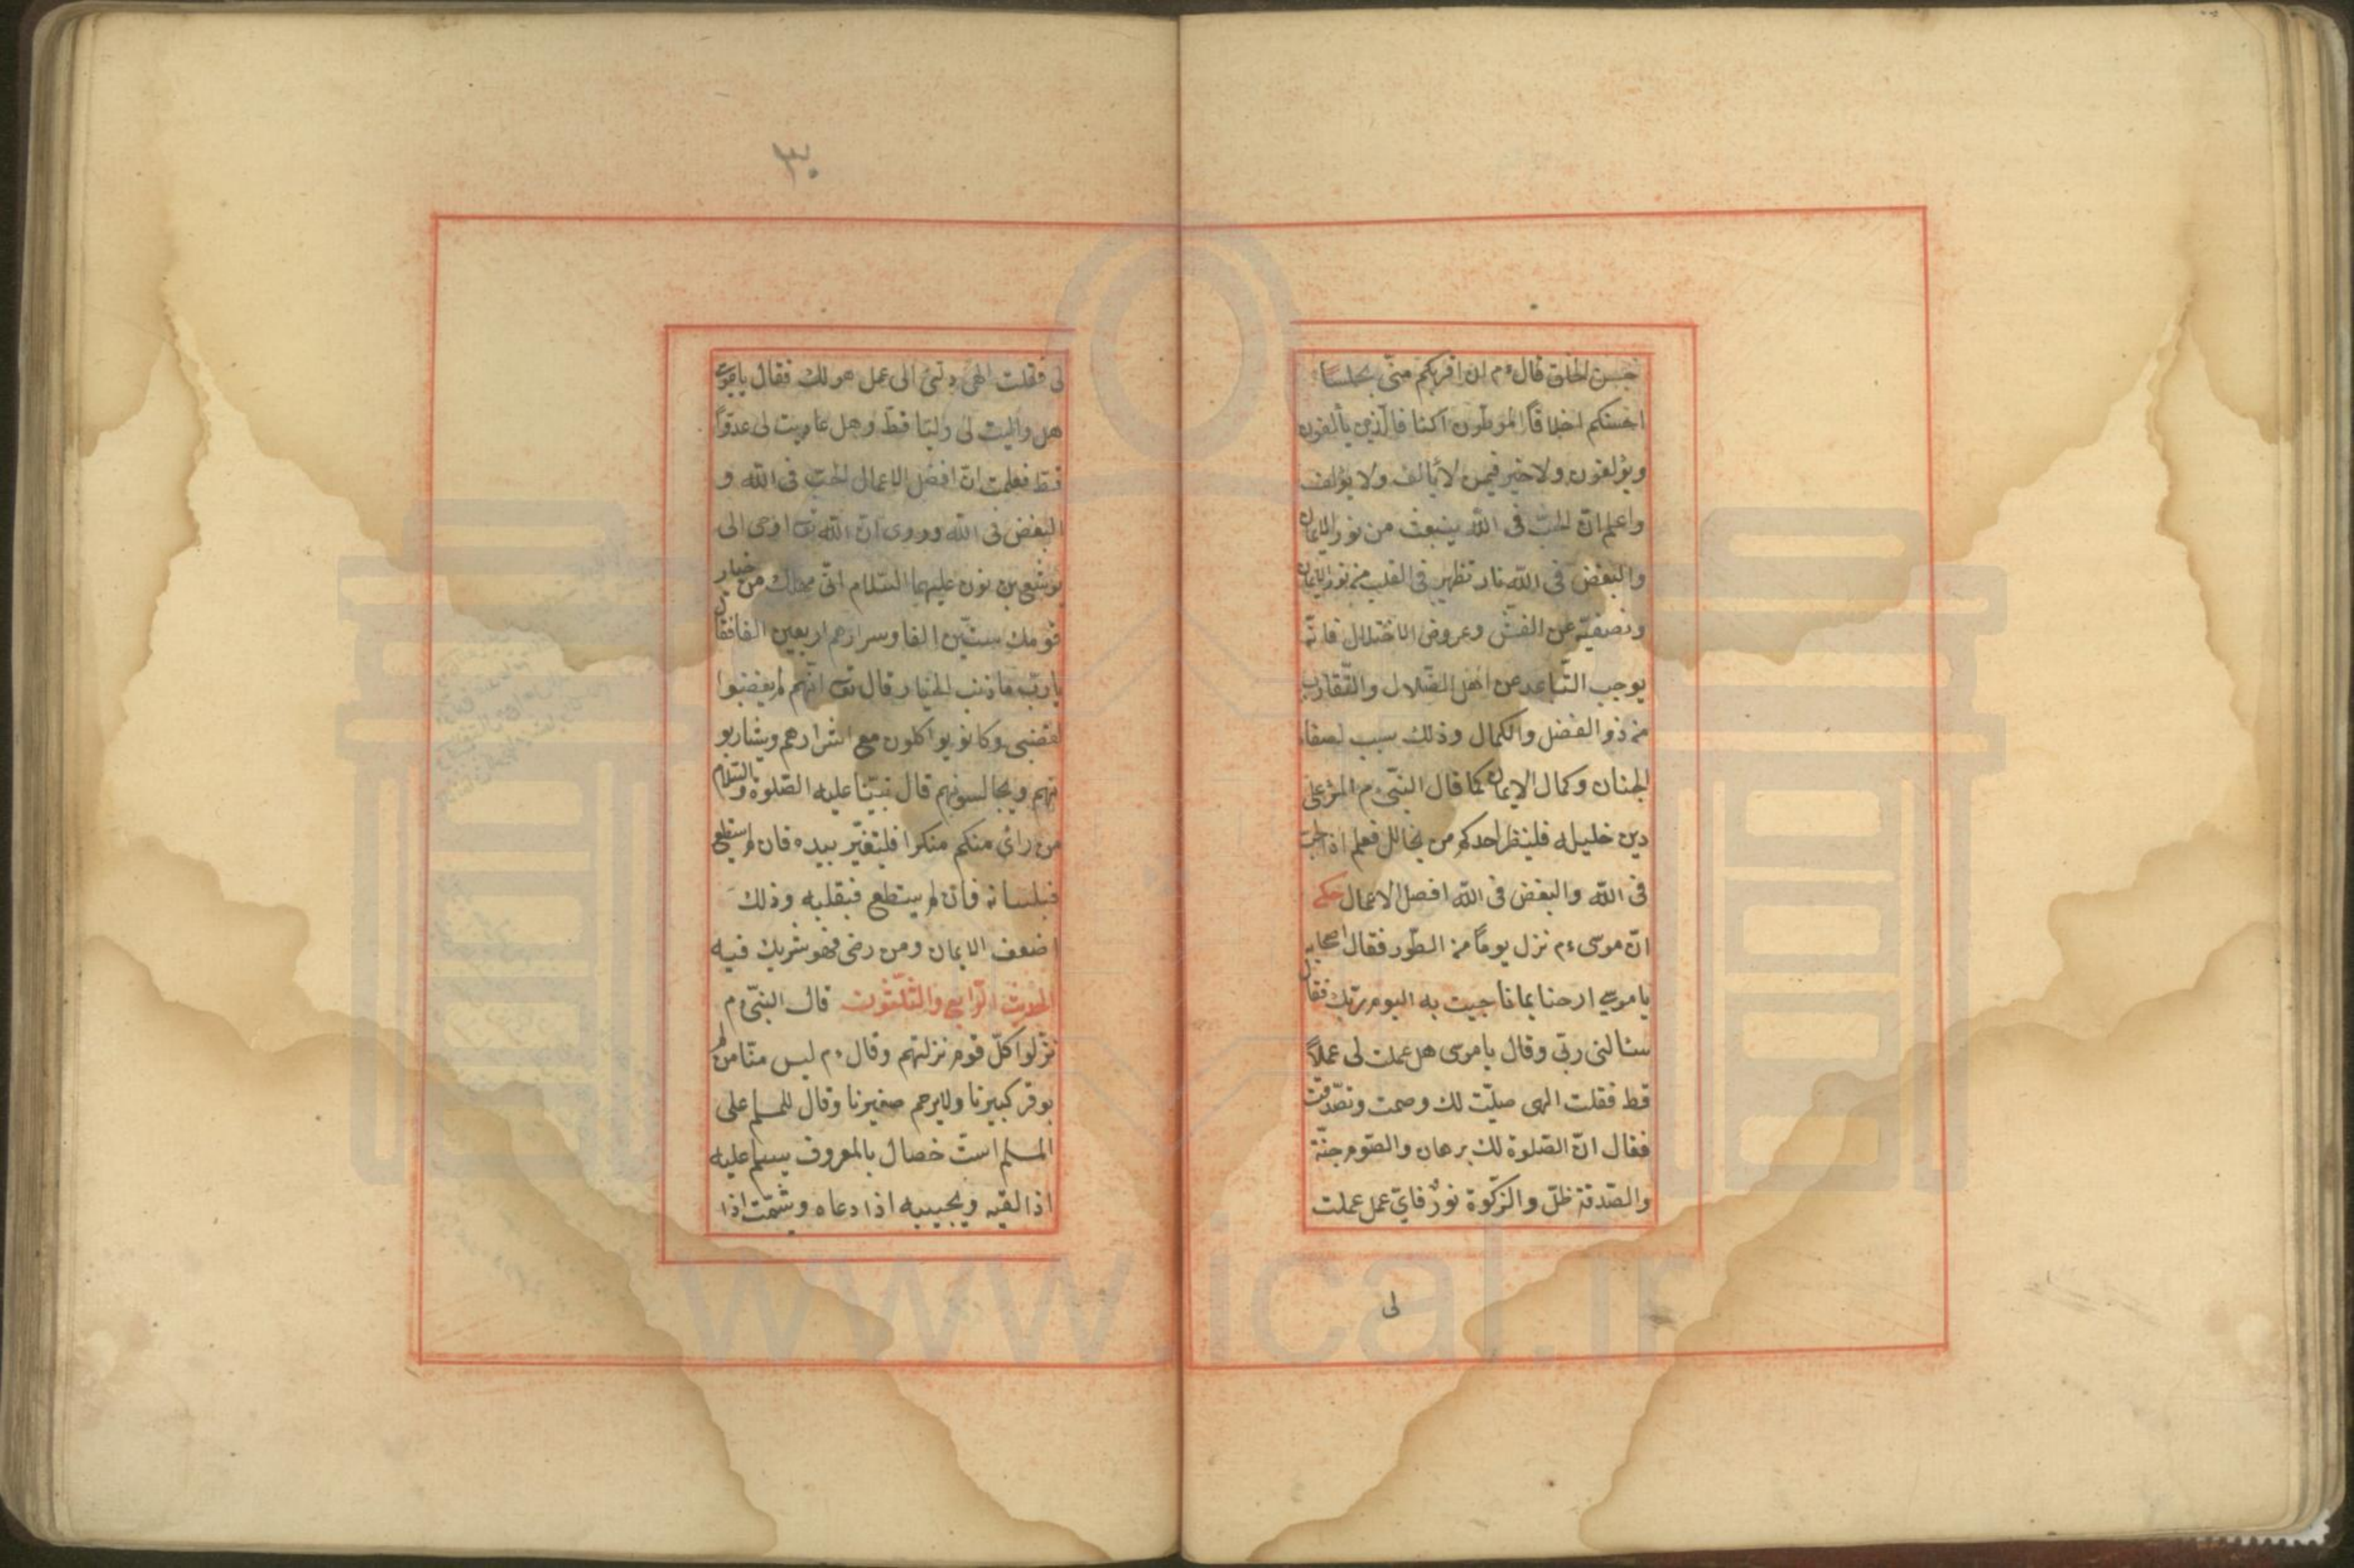 حسن الخلق قال ءم ان اقربكم منّى مجلسا
احسنكم اخلاقاً الموطّون اكنافا الّذين يألفون
ويؤلفون ولا خير فيمن لا يألف ولا يؤلف
واعلم انّ الحبّ فى اللّه ينبعث من نور الايمان
والبغض فى اللّه نار تظهر فى القلب من نور الايمان
وتصفيته عن الغشّ وعروض الاختلال فانّه
يوجب التّباعد عن اهل الضّلال والتّقارب
من ذو الفضل والكمال وذلك سبب لصفاء
الجنان وكمال الايمان كما قال النبّى ءم المرء على
دين خليله فلينظر احدكم من يخالل فعلم اذ الحبّ
فى اللّه والبغض فى اللّه افضل الاعمال حكى
انّ موسى ءم نزل يوماً من الطّور فقال اصحابه
يا موسى ارحنا بما ناجيت به اليوم ربّك فقال
سئالنى ربّى وقال يا موسى هل عملت لى عملاً
قط فقلت الهى صلّيت لك وصمت وتصدّقت
فقال انّ الصّلوة لك برهان والصّوم جنّة
والصّدقة ظلّ والزّكوة نورٌ فاىّ عمل عملت
لى
٣٠
لى فقلت الهى دلّنى الى عمل هو لك فقال يا موسى
هل واليت لى وليّا قطّ وهل عاديت لى عدوّاً
قط فعلمت انّ افضل الاعمال الحبّ فى اللّه و
البغض فى اللّه وروى انّ اللّه تعـ اوحى الى
يوشع بن نون عليهما السّلام انّى مهلك من خيار
قومك ستّين الفا وسرارهم اربعين الفا فقال
يا ربّ ما ذنب الخيار قال تعـ انّهم لم يغضبوا
لغضبى وكانو يواكلون مع اشرارهم ويشاربو
نهم ويجالسونهم قال نبيّنا عليه الصّلوة والسّلام
من رأى منكم منكرا فليتغيّر بيده فان لم يستطع
فبلسانه فان لم يستطع فبقلبه وذلك
اضعف الايمان ومن رضى فهو شريك فيه
الحديث الرّابع والثّلثون قال النبّى ءم
نزّلوا كلّ قوم نزلتهم وقال ءم ليس منّا من لم
يوقر كبيرنا ولا يرحم صغيرنا وقال للمسلم على
المسلم استّ خصال بالمعروف يسلم عليه
اذا لقيه ويجيبه اذا دعاه ويشمّت اذا
www.ical.ir